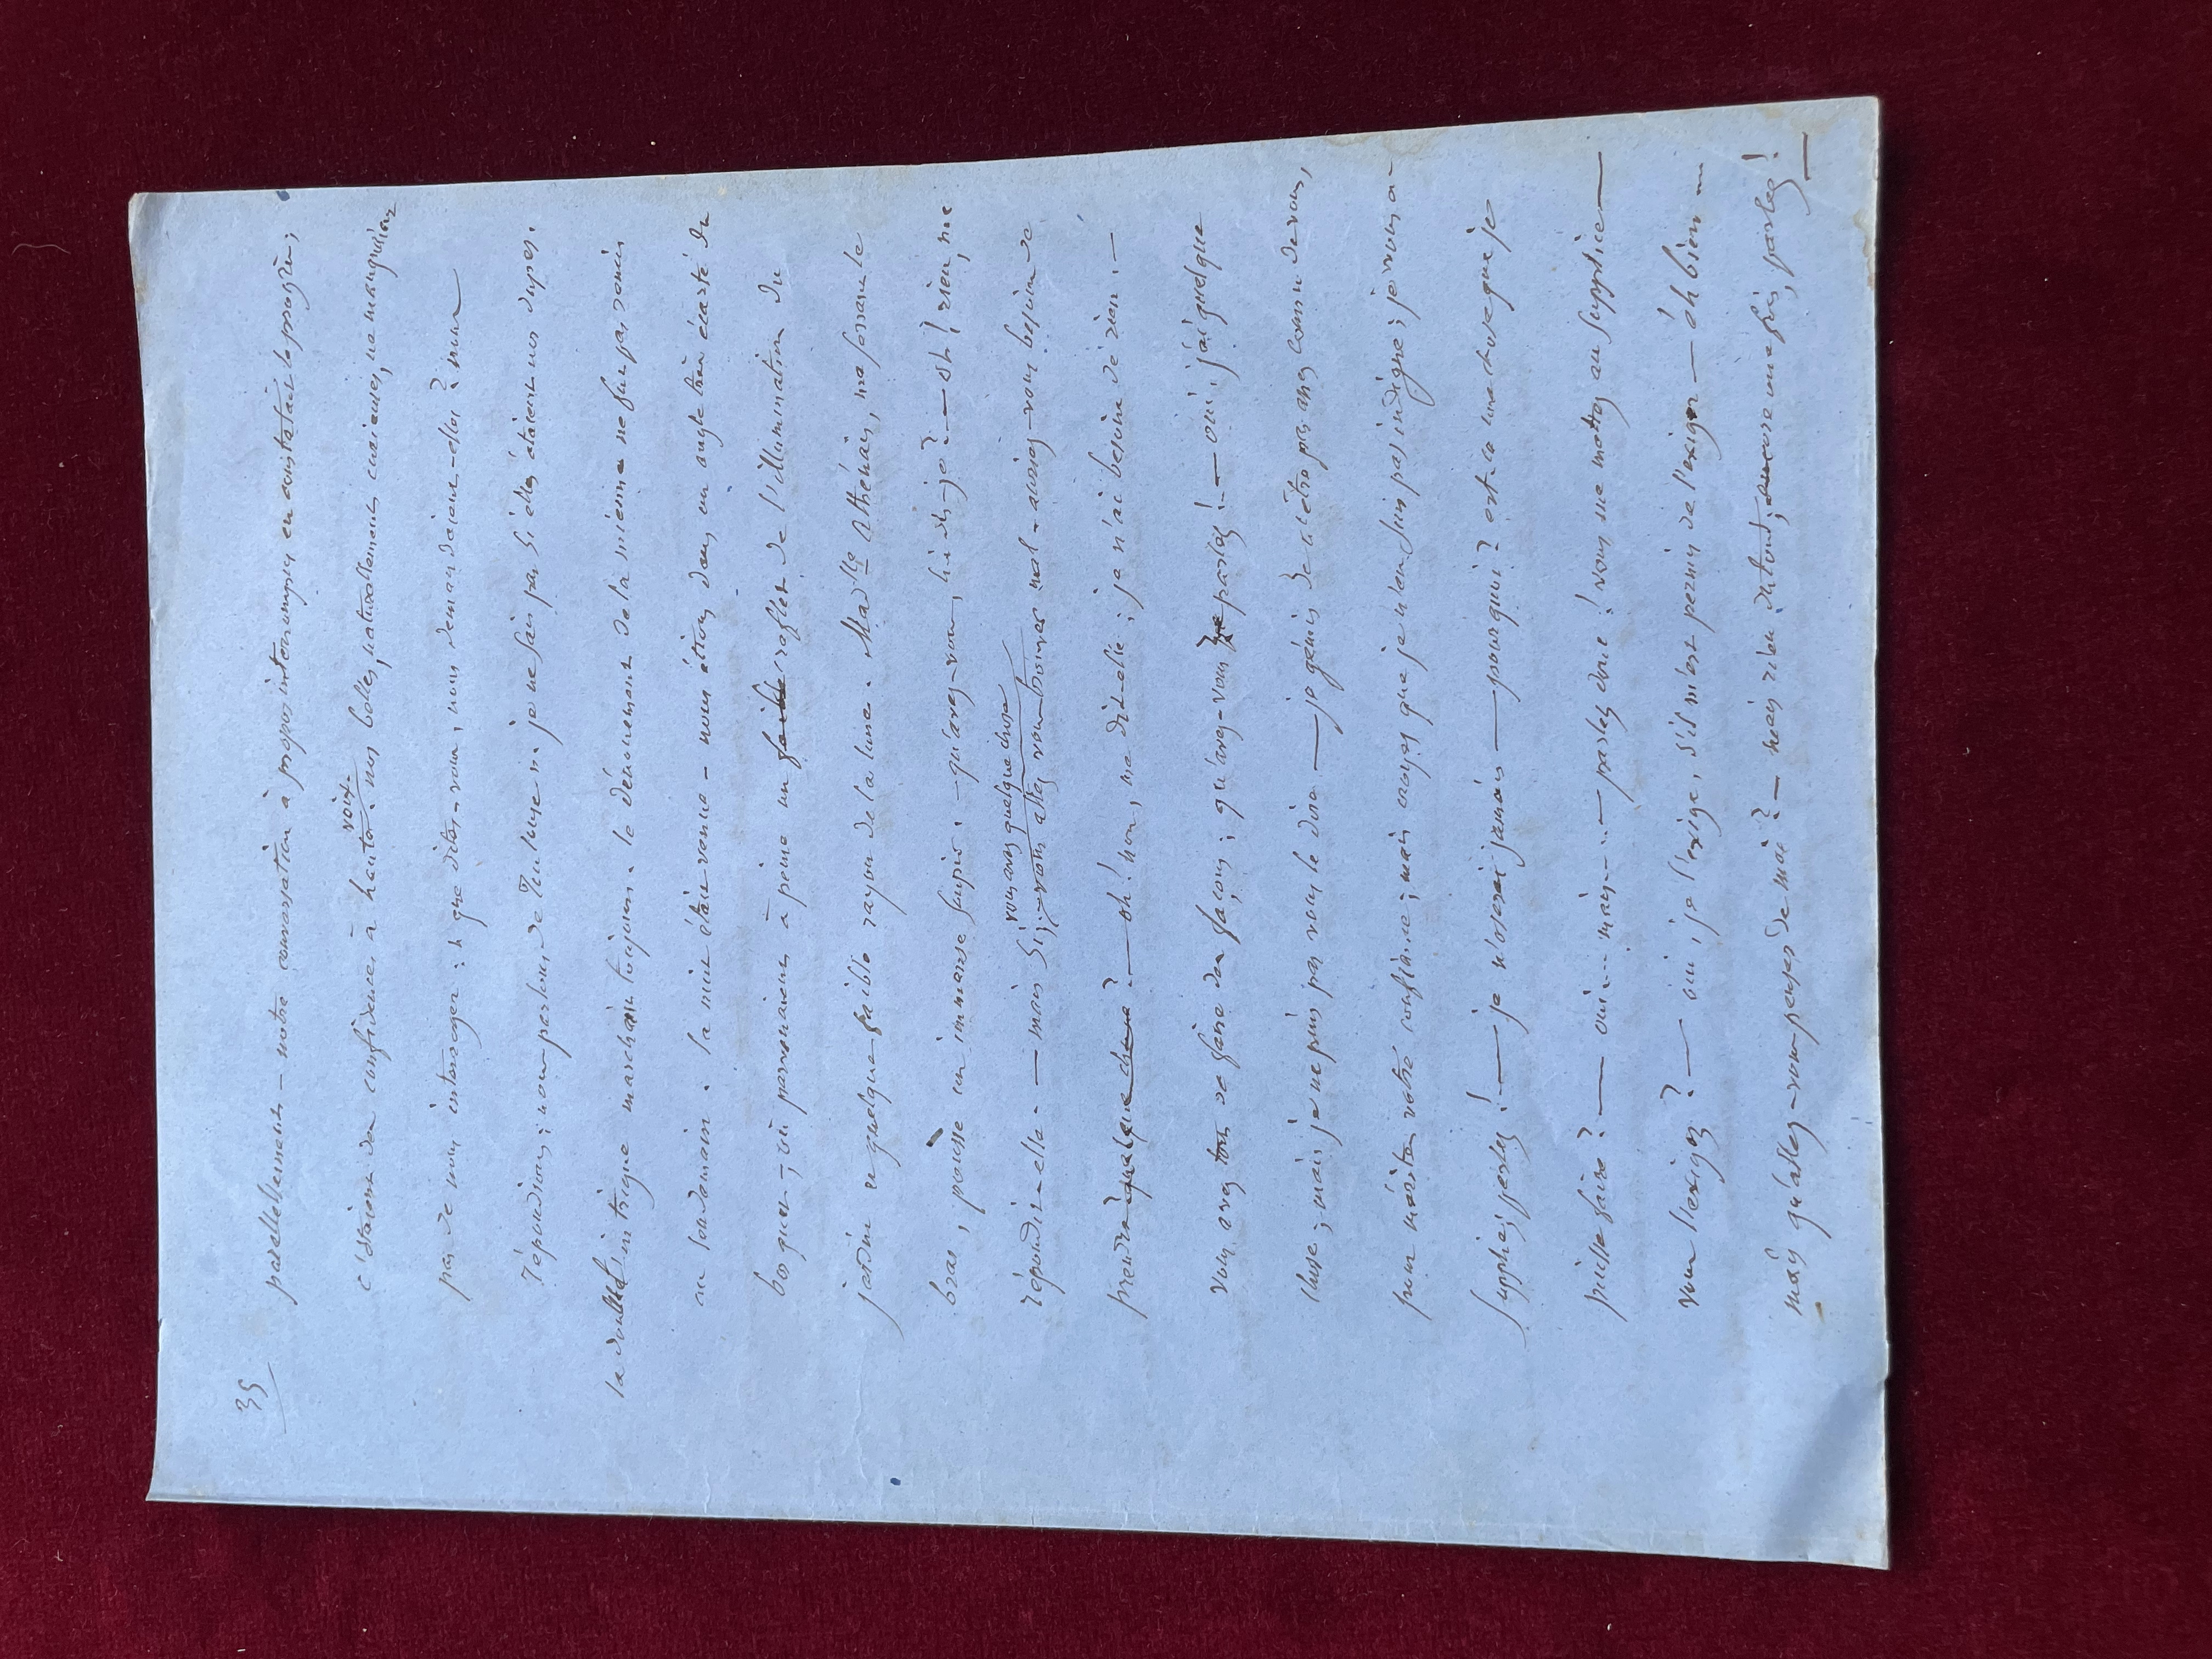 35
parallellement — notre conversation à propos interrompus en constatait le progrès;
c'étaient des confidences à haute voix. nos belles, naturellement curieuses, ne manquaient
pas de nous interroger: « que dites-vous, nous demandaient-elles? nous
répondions; nous parlons de l'ultimé
ni je ne sais pas si elles étaient nos dupes.
la double intrigue marchait toujours. le dénouement de la mienne ne fut pas remis
au lendemain. la nuit était venue — nous étions dans un angle très écarté du
bosquet, où parvenaient à peine un faible reflet de l'illumination du
jardin et quelque faible rayon de la lune. Mad.lle Athénaïs, me serrant le
bras, pousse un immense soupir. — qu'avez-vous, lui dis-je? — oh! rien, me
répondit-elle. — mais si, vous avez quelque chose
vous allez vous trouver mal — auriez-vous besoin de
prendre quelque chose? — oh! non, me dit-elle; je n'ai besoin de rien. —
vous avez ton de faire des façons; qu'avez-vous? parlez! — oui, j'ai quelque
chose; mais je ne puis pas vous le dire — je gémis de n'être pas assez connu de vous,
pour mériter votre confiance; mais croyez que je n'en suis pas indigne; je vous en
supplie, parlez! — je n'oserai jamais — pourquoi? est-ce une chose que je
puisse faire? — oui... mais... — parlez donc! vous me mettez au supplice —
vous l'exigez? — oui, je l'exige, s'il m'est permis de l'exiger — éh bien...
mais qu'allez-vous penser de moi? — mais rien du tout; encore une fois, parlez! —